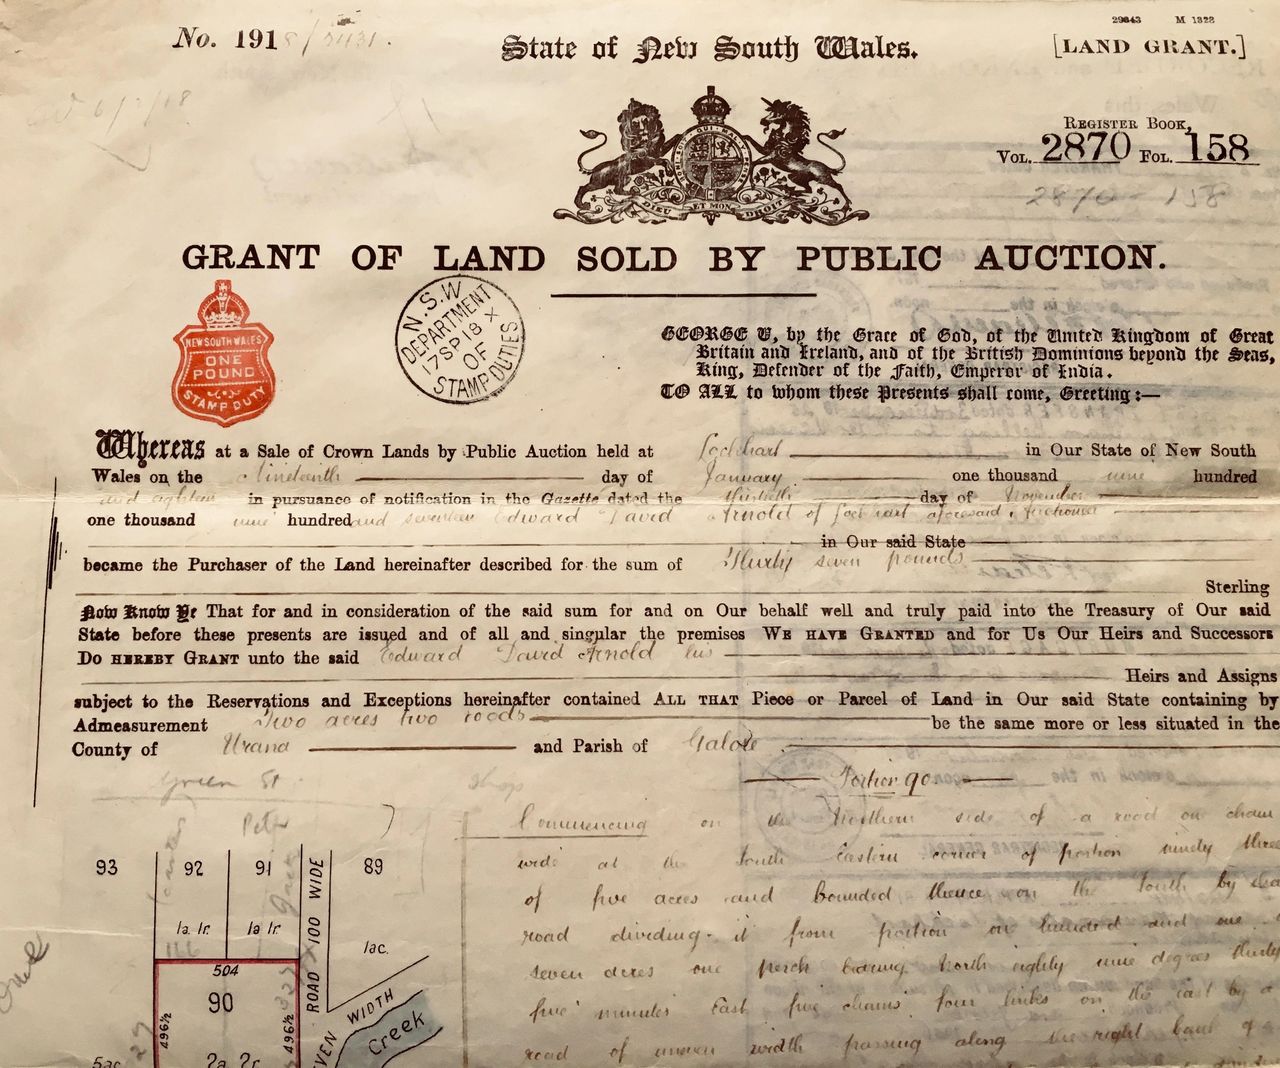 29843 M 1328
No. 1918/
State of New South Wales.
[LAND GRANT.]
REGISTER BOOK,
VOL. 2870 FOL. 158
2870 - 158
DIEU ET MON DROIT
GRANT OF LAND SOLD BY PUBLIC AUCTION.
NEW SOUTH WALES
ONE
POUND
STAMP DUTY
N.S.W
DEPARTMENT
17SP18 X
OF
STAMP DUTIES
GEORGE V, by the Grace of God, of the United Kingdom of Great
Britain and Ireland, and of the British Dominions beyond the Seas,
King, Defender of the Faith, Emperor of India.
TO ALL to whom these Presents shall come, Greeting:—
Whereas at a Sale of Crown Lands by Public Auction held at Lockhart in Our State of New South
Wales on the Nineteenth day of January one thousand nine hundred
and eighteen in pursuance of notification in the Gazette dated the thirtieth day of November
one thousand nine hundred and seventeen Edward David Arnold of Lockhart aforesaid
in Our said State
became the Purchaser of the Land hereinafter described for the sum of Thirty seven pounds
Sterling
Now Know Ye That for and in consideration of the said sum for and on Our behalf well and truly paid into the Treasury of Our said
State before these presents are issued and of all and singular the premises WE HAVE GRANTED and for Us Our Heirs and Successors
DO HEREBY GRANT unto the said Edward David Arnold his
Heirs and Assigns
subject to the Reservations and Exceptions hereinafter contained ALL THAT Piece or Parcel of Land in Our said State containing by
Admeasurement Two acres two roods be the same more or less situated in the
County of Urana and Parish of Galore
Portion 90.
Green St
Shop
Commencing on the Northern side of a road one chain
wide at the South Eastern corner of portion ninety three
of five acres and bounded thence on the South by that
road dividing it from portion one hundred and one
seven acres one perch bearing North eighty nine degrees thirty
five minutes East five chains four links on the East by a
road of uneven width passing along the right bank of a
93
92
91
89
1a. 1r.
1a 1r.
1ac.
ROAD 100 WIDE
504
90
496½
496½
2a 2r
5ac
WIDTH
Creek